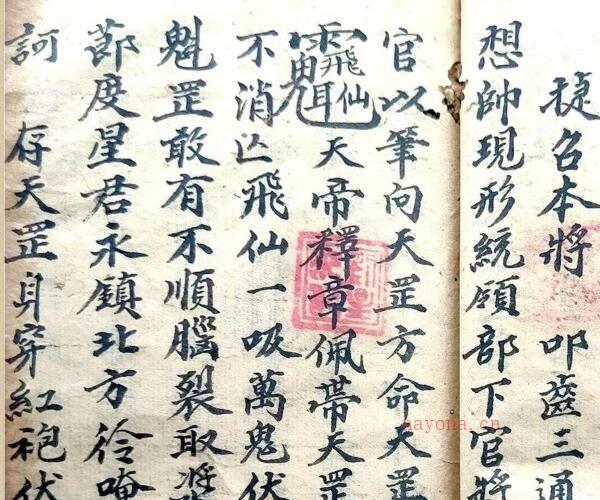 捷召本将 叩齒三通
想帥現形統領部下官将
官以筆向天罡方命天罡
天帝釋章佩帶天罡
不消亾飛仙一吸萬鬼伏
魁罡敢有不順腦裂取将
節度星君永鎮北方彾唵
訶 存天罡身穿紅袍伏
nayona.cn